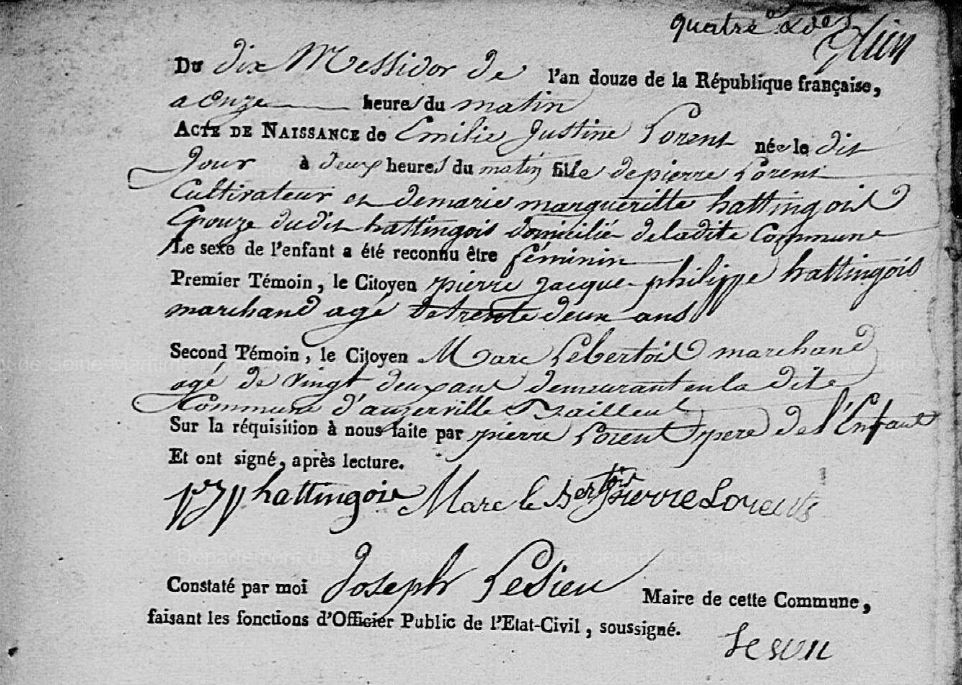 quatre
Du dix Messidor de l'an douze de la République française,
a onze heures du matin
ACTE DE NAISSANCE de Emilie Justine Lorent née le dit
Jour à deux heures du matin fille de pierre Lorent
Cultivateur et de marie margueritte hattingois
Epouze dudit hattingois domicilié de la dite Commune
Le sexe de l'enfant a été reconnu être féminin
Premier Témoin, le Citoyen pierre Jacque philippe hattingois
marchand agé de trente deux ans
Second Témoin, le Citoyen Marc Lebertois marchand
agé de vingt deux ans demeurant en la dite
Commune d'auzerville
Sur la réquisition à nous faite par pierre Lorent pere de l'Enfant
Et ont signé, après lecture.
hattingois Marc le Bertois Pierre Lorent
Constaté par moi Joseph Lesieu Maire de cette Commune,
faisant les fonctions d'Officier Public de l'Etat-Civil, soussigné.